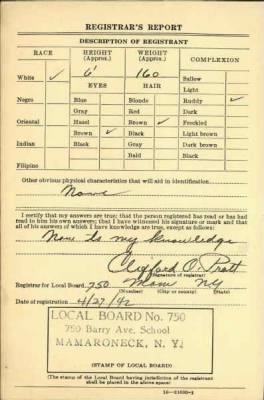 REGISTRAR'S REPORT
DESCRIPTION OF REGISTRANT
RACE HEIGHT (Approx.) WEIGHT (Approx.) COMPLEXION
White ✓ 6' 160 Sallow
Light
EYES HAIR Ruddy ✓
Negro Blue Blonde Dark
Gray Red Freckled
Oriental Hazel Brown ✓ Light brown
Brown ✓ Black Dark brown
Indian Black Gray Black
Bald
Filipino
Other obvious physical characteristics that will aid in identification
None
I certify that my answers are true; that the person registered has read or has had
read to him his own answers; that I have witnessed his signature or mark and that
all of his answers of which I have knowledge are true, except as follows:
None to my knowledge
Clifford O. Pratt
(Signature of registrar)
Registrar for Local Board 750 Mam NY
(Number) (City or county) (State)
Date of registration 4/27/42
LOCAL BOARD No. 750
750 Barry Ave. School
MAMARONECK, N. Y.
(STAMP OF LOCAL BOARD)
(The stamp of the Local Board having jurisdiction of the registrant
shall be placed in the above space)